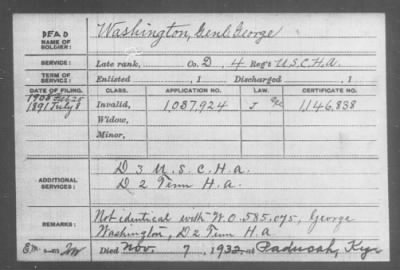 DEAD
NAME OF SOLDIER:
Washington, Genl George
SERVICE:
Late rank, Co. D, 4 Reg't U.S.C.H.A.
TERM OF SERVICE:
Enlisted , 1 Discharged , 1
DATE OF FILING. CLASS. APPLICATION NO. LAW. CERTIFICATE NO.
1908 Feb 25
1891 July 8 Invalid, 1,037,924 J 1,146,838
Widow,
Minor,
ADDITIONAL SERVICES:
D 3 U.S.C.H.a.
D 2 Tenn H.a.
REMARKS:
Not identical with W.O. 585,075, George
Washington, D. 2 Tenn H.a
Died Nov. 7, 1932, at Paducah, Ky.